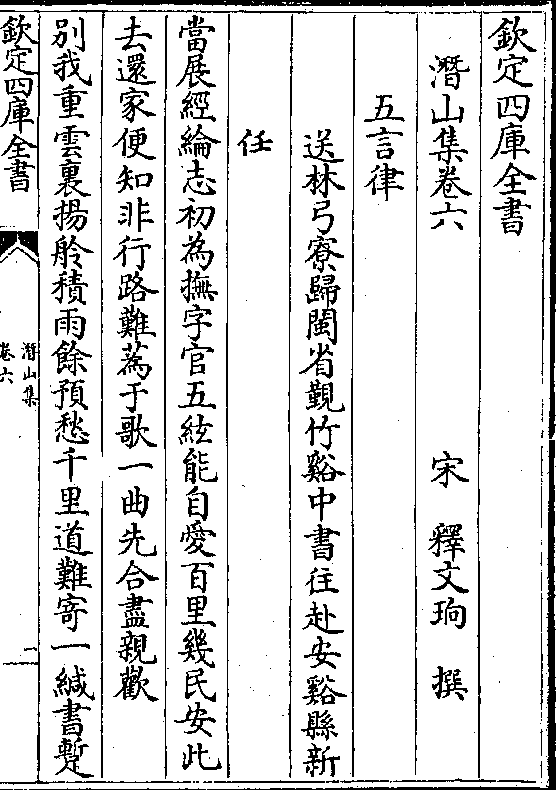 欽定四庫全書
潛山集卷六
宋 釋文珦 撰
五言律
送林弓寮歸閩省覲竹谿中書往赴安谿縣新
任
當展經綸志初為撫字官五絃能自愛百里幾民安此
去還家便知非行路難蔿于歌一曲先合盡親歡
别我重雲裏揚舲積雨餘預愁千里道難寄一緘書暫
欽定四庫全書
潛山集
卷六
一